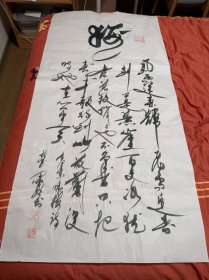 梅
風雨送春歸飛雪迎春
到已是悬崖百丈冰犹
有花枝俏俏也不争春只把
春来报待到山花烂漫
时她在丛中笑毛主席咏梅诗